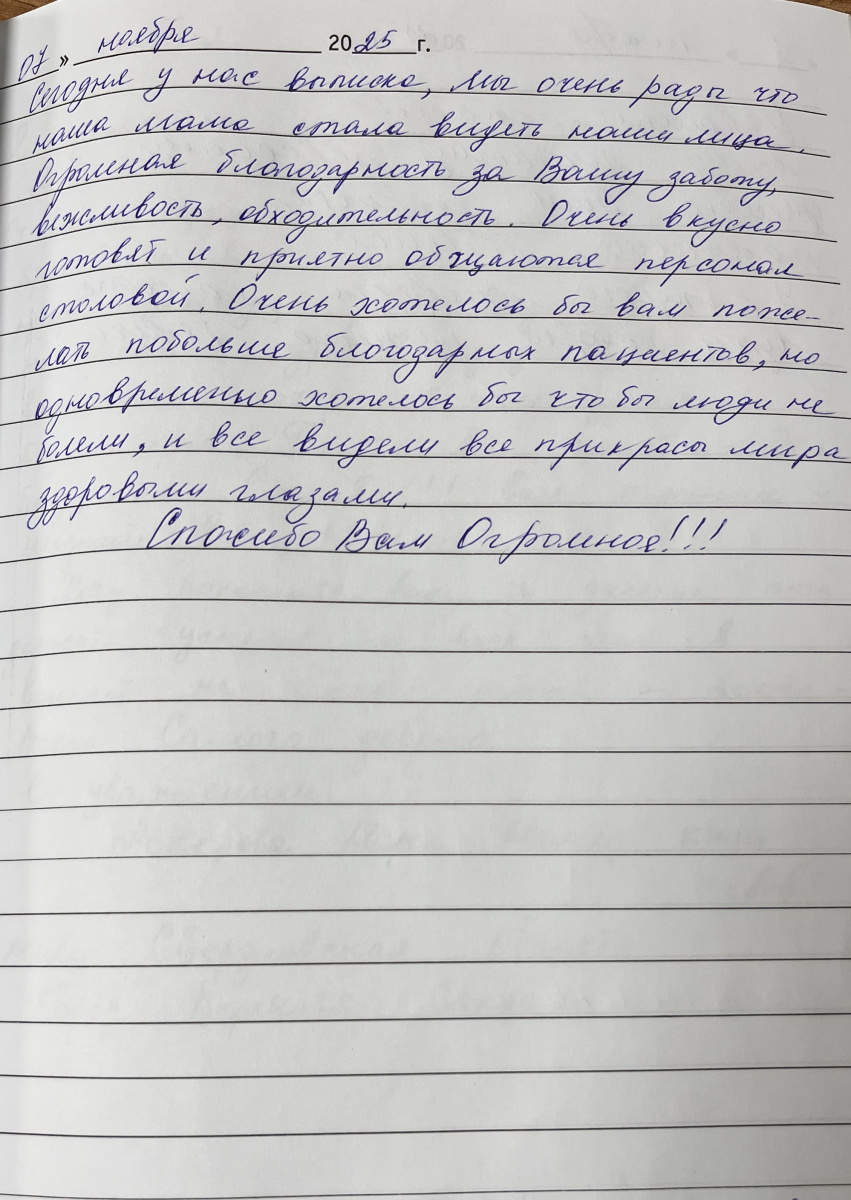 07 » ноября 2025 г.
Сегодня у нас выписка, мы очень рады что
наша мама стала видеть наши лица.
Огромная благодарность за Вашу заботу,
вежливость, обходительность. Очень вкусно
готовят и приятно общаются персонал
столовой. Очень хотелось бы вам поже-
лать побольше благодарных пациентов, но
одновременно хотелось бы что бы люди не
болели, и все видели все прикрасы мира
здоровыми глазами.
Спасибо Вам Огромное!!!